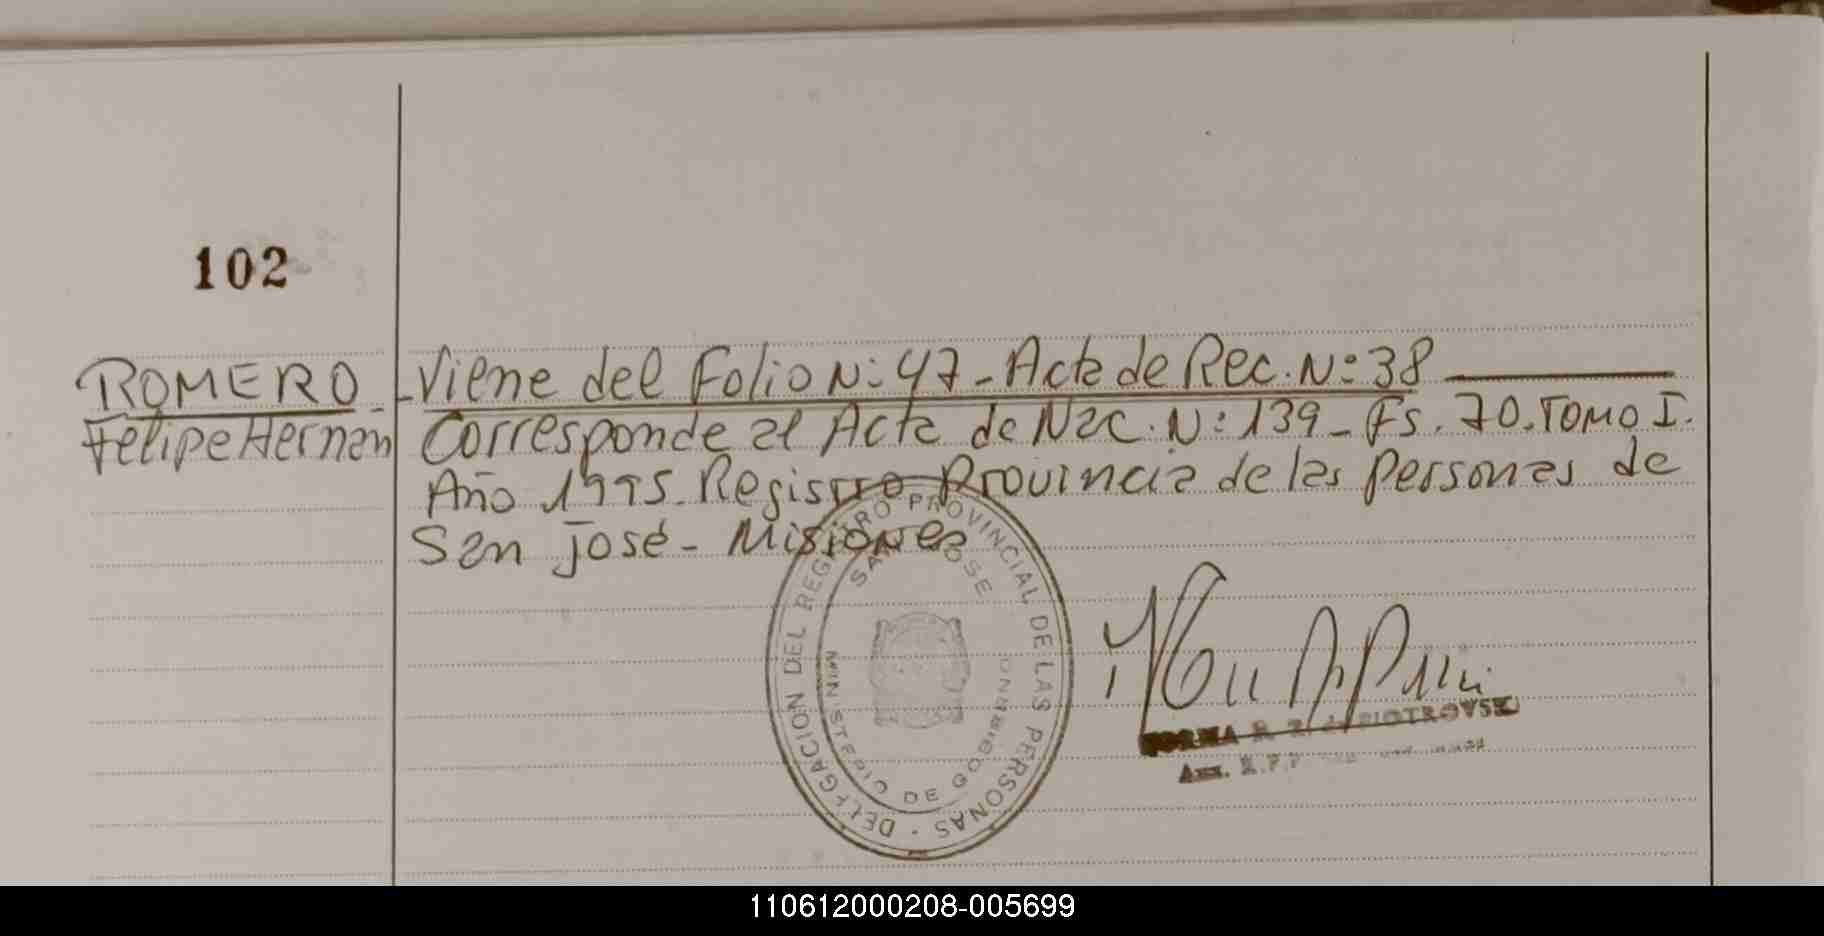 102
ROMERO_
Felipe Hernan
-Viene del Folio N:47-Acta de Rec.N:38
Corresponde al Acta de Nac.N:139-Fs.70.TOMO I.
Año 1995-Registro Provincia de las Personas de
San José- Misiones
DELEGACION DEL REGISTRO PROVINCIAL DE LAS PERSONAS -
SAN JOSE
MINISTERIO DE GOBIERNO
NORMA PIOTROVSKI
Aux.
110612000208-005699